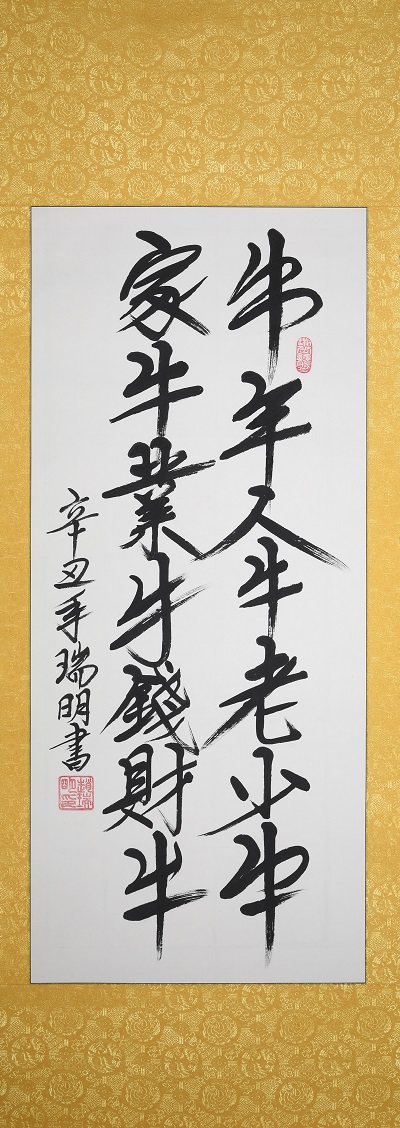 牛年人牛老少牛
家牛業牛錢財牛
辛丑年瑞明書